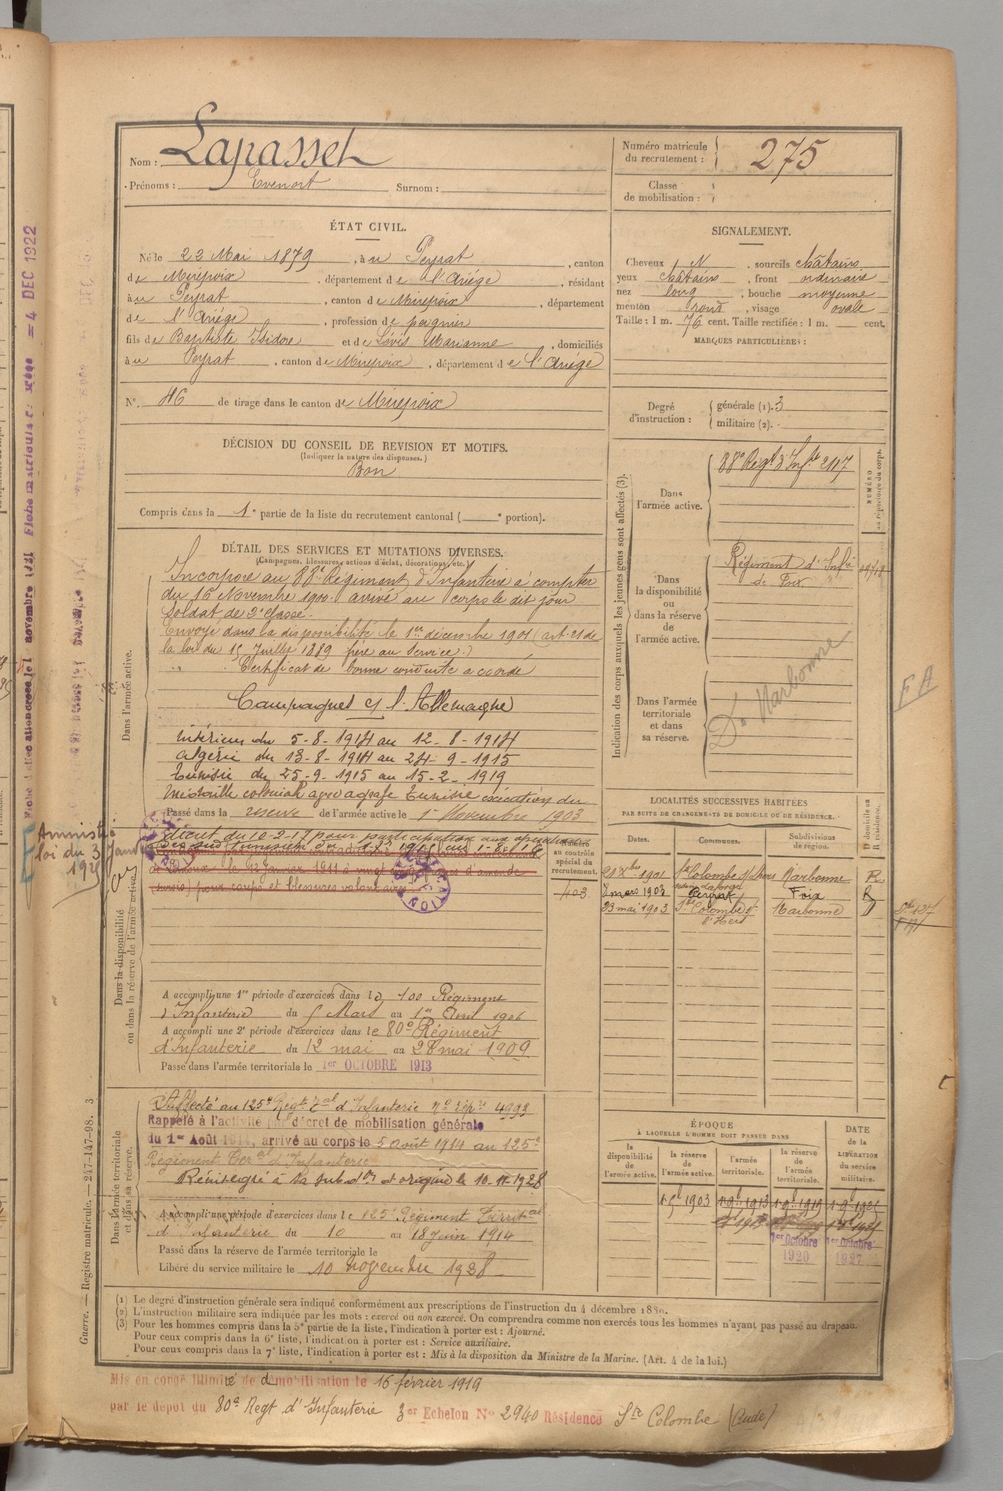 Nom : Lapasset
Prénoms : Evenort Surnom :
Numéro matricule du recrutement : 275
Classe de mobilisation :
ÉTAT CIVIL.
Né le 22 Mai 1879, à u Peyrat, canton
de Mirepoix, département de l'Ariége, résidant
à u Peyrat, canton de Mirepoix, département
de l'Ariége, profession de peignier
fils de Baptiste Isidore et de Marianne, domiciliés
à u Peyrat, canton de Mirepoix, département de l'Ariége
N° 46 de tirage dans le canton de Mirepoix
SIGNALEMENT.
Cheveux N, sourcils châtains
yeux châtains, front ordinaire
nez long, bouche moyenne
menton rond, visage ovale
Taille : 1 m. 76 cent. Taille rectifiée : 1 m. cent.
MARQUES PARTICULIÈRES :
Degré d'instruction : générale (1). 3
militaire (2). -
DÉCISION DU CONSEIL DE REVISION ET MOTIFS.
(Indiquer la nature des dispenses.)
Bon
Compris dans la 1e partie de la liste du recrutement cantonal ( e portion).
Indication des corps auxquels les jeunes gens sont affectés (3).
NUMÉRO au répertoire du corps.
Dans l'armée active.
88e Regt d'Infrie 2117
Dans la disponibilité ou dans la réserve de l'armée active.
Régiment d'Infie
de Foix
Dans l'armée territoriale et dans sa réserve.
Narbonne
F A
DÉTAIL DES SERVICES ET MUTATIONS DIVERSES.
(Campagnes, blessures, actions d'éclat, décorations, etc.)
Dans l'armée active.
Incorporé au 88e Régiment d'Infanterie à compter
du 16 Novembre 1900. arrivé au corps le dit jour
Soldat de 2e classe.
Envoyé dans la disponibilité le 1er décembre 1901 (art. 21 de
la loi du 15 Juillet 1889 frère au Service.)
Certificat de bonne conduite accordé
Campagnes c/ l'Allemagne
Intérieur du 5-8-1914 au 12-8-1914
Algérie du 13-8-1914 au 24-9-1915
Tunisie du 25-9-1915 au 15-2-1919
Médaille coloniale avec agrafe Tunisie exécution du
Passé dans la réserve de l'armée active le 1er Novembre 1903
décret du 10-2-17 pour participation aux opérations
des sud tunisien
le 13 Janvier 1911 à vingt d'amende
pour coups et blessures volontaires
Amnistié
loi du 3 Janv
Dans la disponibilité ou dans la réserve de l'armée active.
A accompli une 1re période d'exercices dans le 100 Régiment
d'Infanterie du 5 Mars au 1er Avril 1906
A accompli une 2e période d'exercices dans le 80e Régiment
d'Infanterie du 12 mai au 28 mai 1909
Passé dans l'armée territoriale le 1er OCTOBRE 1913
Numéro au contrôle spécial du recrutement.
403
LOCALITÉS SUCCESSIVES HABITÉES
PAR SUITE DE CHANGEMENTS DE DOMICILE OU DE RÉSIDENCE.
Dates. Communes. Subdivisions de région. D domicile ou R résidence.
1901 Ste Colombe s/ l'hers Narbonne R
7 mars 1903 Peyrat Foix R
23 mai 1903 Ste Colombe s/ l'Hers Narbonne D
Dans l'armée territoriale et dans sa réserve.
Affecté au 125e Regt Tal d'Infanterie n° rép. 4993
Rappelé à l'activité par décret de mobilisation générale
du 1er Août 1914, arrivé au corps le 5 août 1914 au 125e
Régiment Terral d'Infanterie
Réintégré à sa subdon d'origine le 10-11-1928
A accompli une période d'exercices dans le 125e Régiment Territal
d'Infanterie du 10 au 18 Juin 1914
Passé dans la réserve de l'armée territoriale le
Libéré du service militaire le 10 novembre 1928
ÉPOQUE
À LAQUELLE L'HOMME DOIT PASSER DANS
la disponibilité de l'armée active. la réserve de l'armée active. l'armée territoriale. la réserve de l'armée territoriale.
DATE de la LIBÉRATION du service militaire.
1903 1913 1919
1er Octobre 1920
1er Octobre 1927
(1) Le degré d'instruction générale sera indiqué conformément aux prescriptions de l'instruction du 4 décembre 1889.
(2) L'instruction militaire sera indiquée par les mots : exercé ou non exercé. On comprendra comme non exercés tous les hommes n'ayant pas passé au drapeau.
(3) Pour les hommes compris dans la 5e partie de la liste, l'indication à porter est : Ajourné.
Pour ceux compris dans la 6e liste, l'indication à porter est : Service auxiliaire.
Pour ceux compris dans la 7e liste, l'indication à porter est : Mis à la disposition du Ministre de la Marine. (Art. 4 de la loi.)
Mis en congé illimité de démobilisation le 16 février 1919
par le dépôt du 80e Regt d'Infanterie 3er Echelon No 2940 Résidence Ste Colombe (Aude)
Guerre. — Registre matricule. — 247-147-98. 3
= 4 DEC 1922